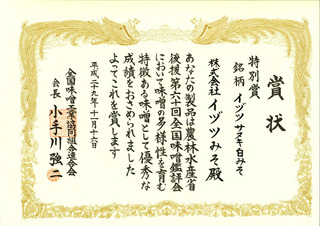 賞状
特別賞
銘柄 イヅツ サヌキ白みそ
株式会社 イヅツみそ 殿
あなたの製品は農林水産省
後援第六十回全国味噌鑑評会
において味噌の多様性を育む
特徴ある味噌として優秀な
成績をおさめられました
よってこれを賞します
平成二十九年十一月十六日
全国味噌工業協同組合連合会
会長 小手川強二